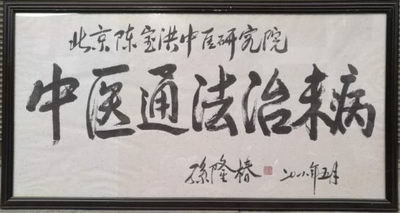 北京陈宝洪中医研究院
中医通法治未病
孫隆椿 二〇一八年五月